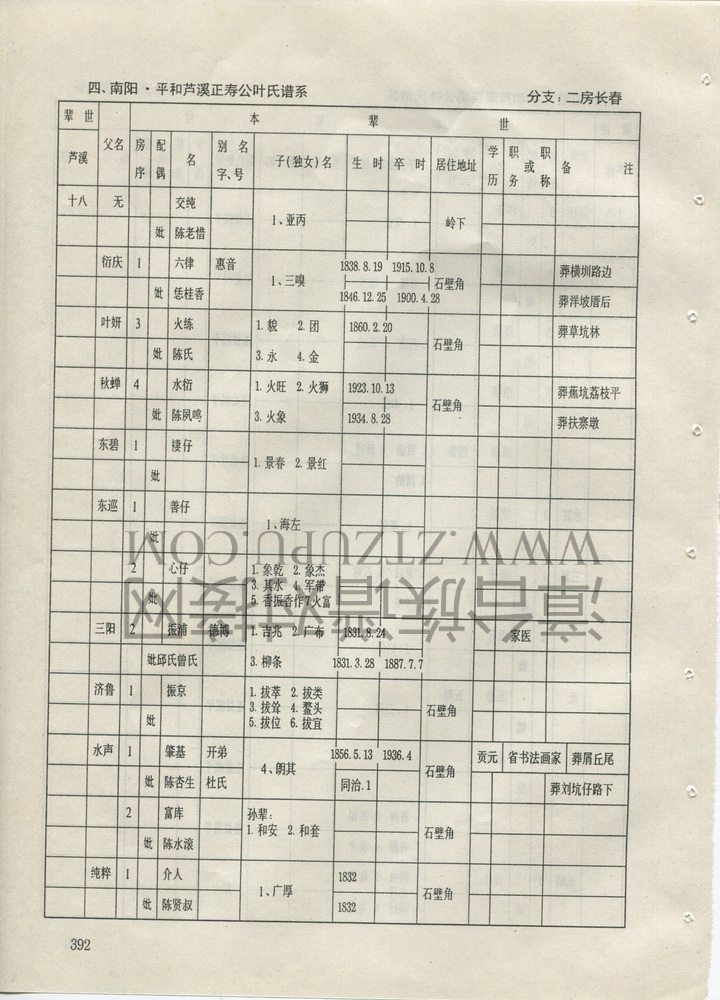 四、南阳·平和芦溪正寿公叶氏谱系 分支：二房长春
辈世 本 辈 世
芦溪 父名 房序 配偶 名 别名字、号 子(独女)名 生时 卒时 居住地址 学历 职务或职称 备注
十八 无 交纯 1、亚丙 岭下
妣 陈老惜
衍庆 1 六律 惠音 1、三嗅 1838.8.19 1915.10.8 石壁角 葬横圳路边
妣 恁桂香 1846.12.25 1900.4.28 葬洋坡厝后
叶妍 3 火练 1.貌 2.团 1860.2.20 石壁角 葬草坑林
妣 陈氏 3.永 4.金
秋蝉 4 水衍 1.火旺 2.火狮 1923.10.13 石壁角 葬蕉坑荔枝平
妣 陈凤鸣 3.火象 1934.8.28 葬扶寨墩
东碧 1 棲仔 1.景春 2.景红
妣
东巡 1 善仔 1、海左
妣
2 心仔 1.象乾 2.象杰
妣 3.其水 4.军带
5.香振香作7.火富
三阳 2 振浦 德博 1.吉兆 2.广布 1831.8.24 家医
妣邱氏曾氏 3.柳条 1831.3.28 1887.7.7
济鲁 1 振京 1.拔萃 2.拔类 石壁角
3.拔耸 4.鳌头
妣 5.拔位 6.拔宜
水声 1 肇基 开弟 4、朗其 1856.5.13 1936.4 石壁角 贡元 省书法画家 葬屑丘尾
妣 陈杏生 杜氏 同治.1 葬刘坑仔路下
2 富库 孙辈： 石壁角
1.和安 2.和套
妣 陈水滚
纯粹 1 介人 1、广厚 1832 石壁角
妣 陈贤叔 1832
392
WWW.ZTZUPU.COM
漳台族谱对接网